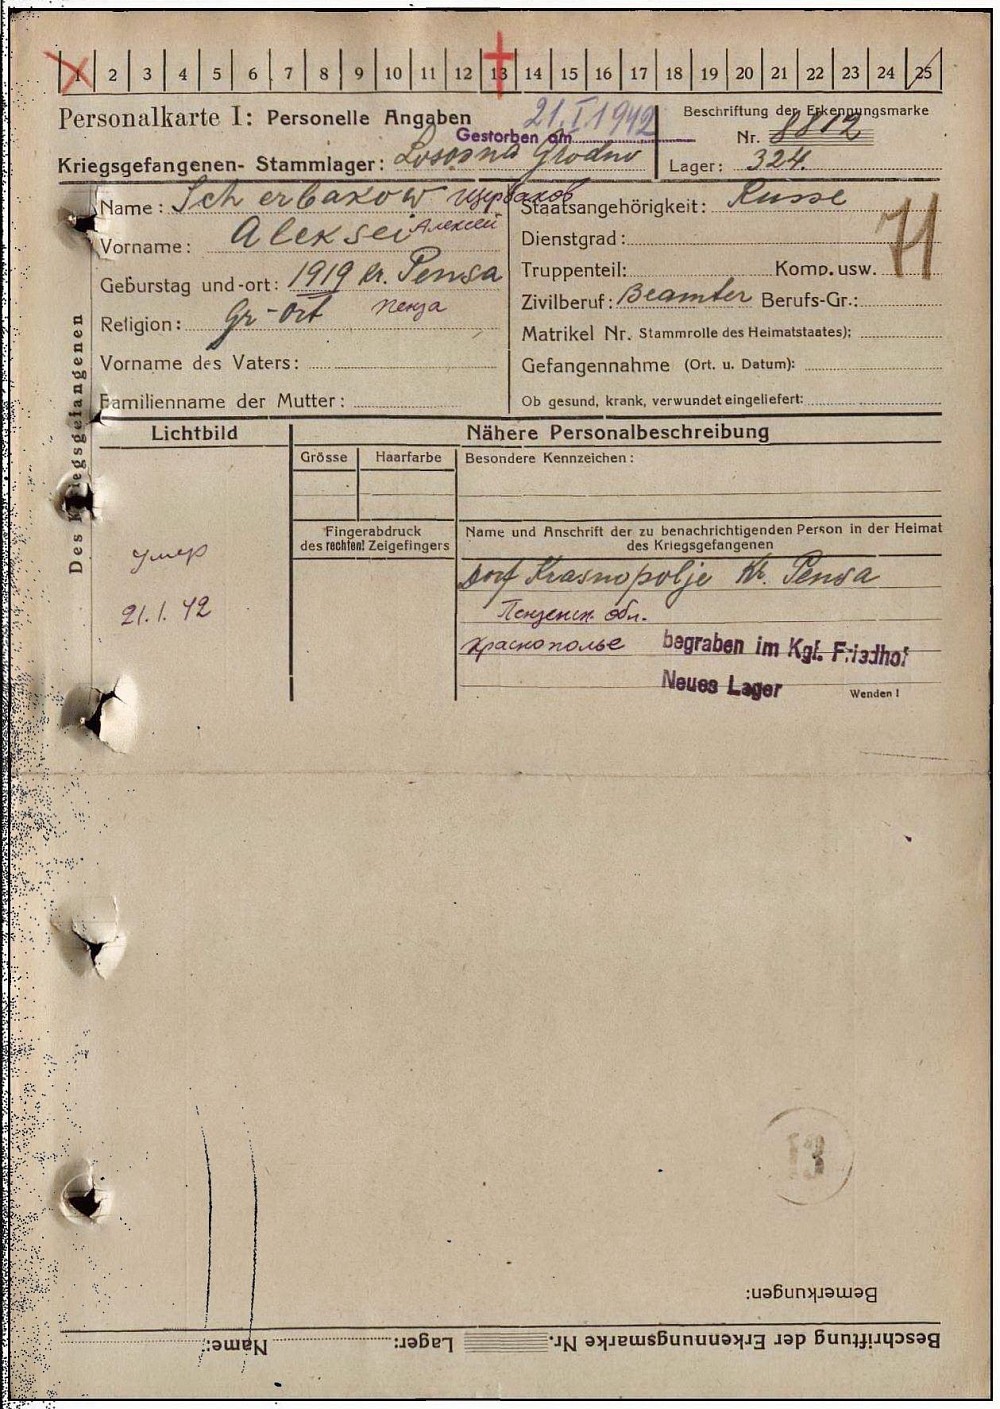 1 2 3 4 5 6 7 8 9 10 11 12 13 14 15 16 17 18 19 20 21 22 23 24 25
Personalkarte I: Personelle Angaben
21.I.1942
Gestorben am
Beschriftung der Erkennungsmarke
Nr. 8812
Kriegsgefangenen- Stammlager: Lososna Grodno
Lager: 324.
Des Kriegsgefangenen
Name: Scherbakow Щербаков
Vorname: Aleksei Алексей
Geburstag und-ort: 1919 kr. Pensa
Пенза
Religion: Gr-Ort
Vorname des Vaters:
Familienname der Mutter:
Staatsangehörigkeit: Russe
Dienstgrad:
Truppenteil: Komp. usw.
Zivilberuf: Beamter Berufs-Gr.:
Matrikel Nr. Stammrolle des Heimatstaates);
Gefangennahme (Ort. u. Datum):
Ob gesund, krank, verwundet eingeliefert:
Lichtbild
Nähere Personalbeschreibung
Grösse Haarfarbe Besondere Kennzeichen:
Fingerabdruck
des rechten! Zeigefingers
Name und Anschrift der zu benachrichtigenden Person in der Heimat
des Kriegsgefangenen
умер
21.1.42
Dorf Krasnopolje Kr. Pensa
Пензенск. обл.
Краснополье
begraben im Kgf. Friedhof
Neues Lager
Wenden!
13
Bemerkungen:
Beschriftung der Erkennungsmarke Nr. Lager: Name: